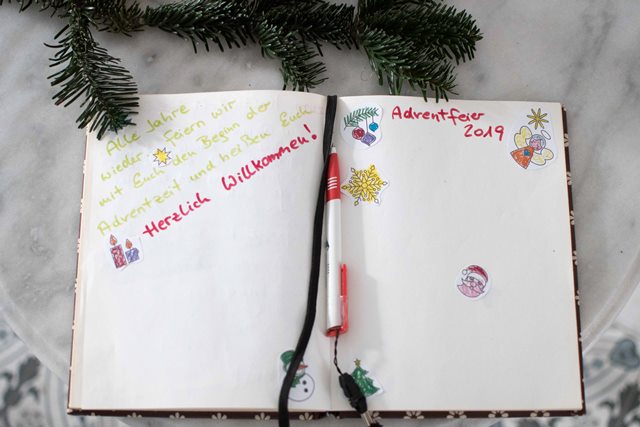 Alle Jahre
wieder feiern wir
mit Euch den Beginn der
Adventzeit und heißen Euch
Herzlich Willkommen!
Adventfeier
2019